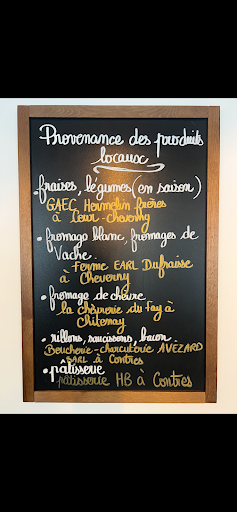 Provenance des produits
locaux
• fraises, légumes (en saison)
GAEC Hermelin frères
à Cour-cheverny
• fromage blanc, fromages de
Vache.
Ferme EARL Dufraisse
à Cheverny
• fromage de chèvre
la chèvrerie du fay à
Chitenay
• rillons, saucissons, bacon
Boucherie-charcuterie AVEZARD
SARL à Contres
• pâtisserie
pâtisserie HB à Contres